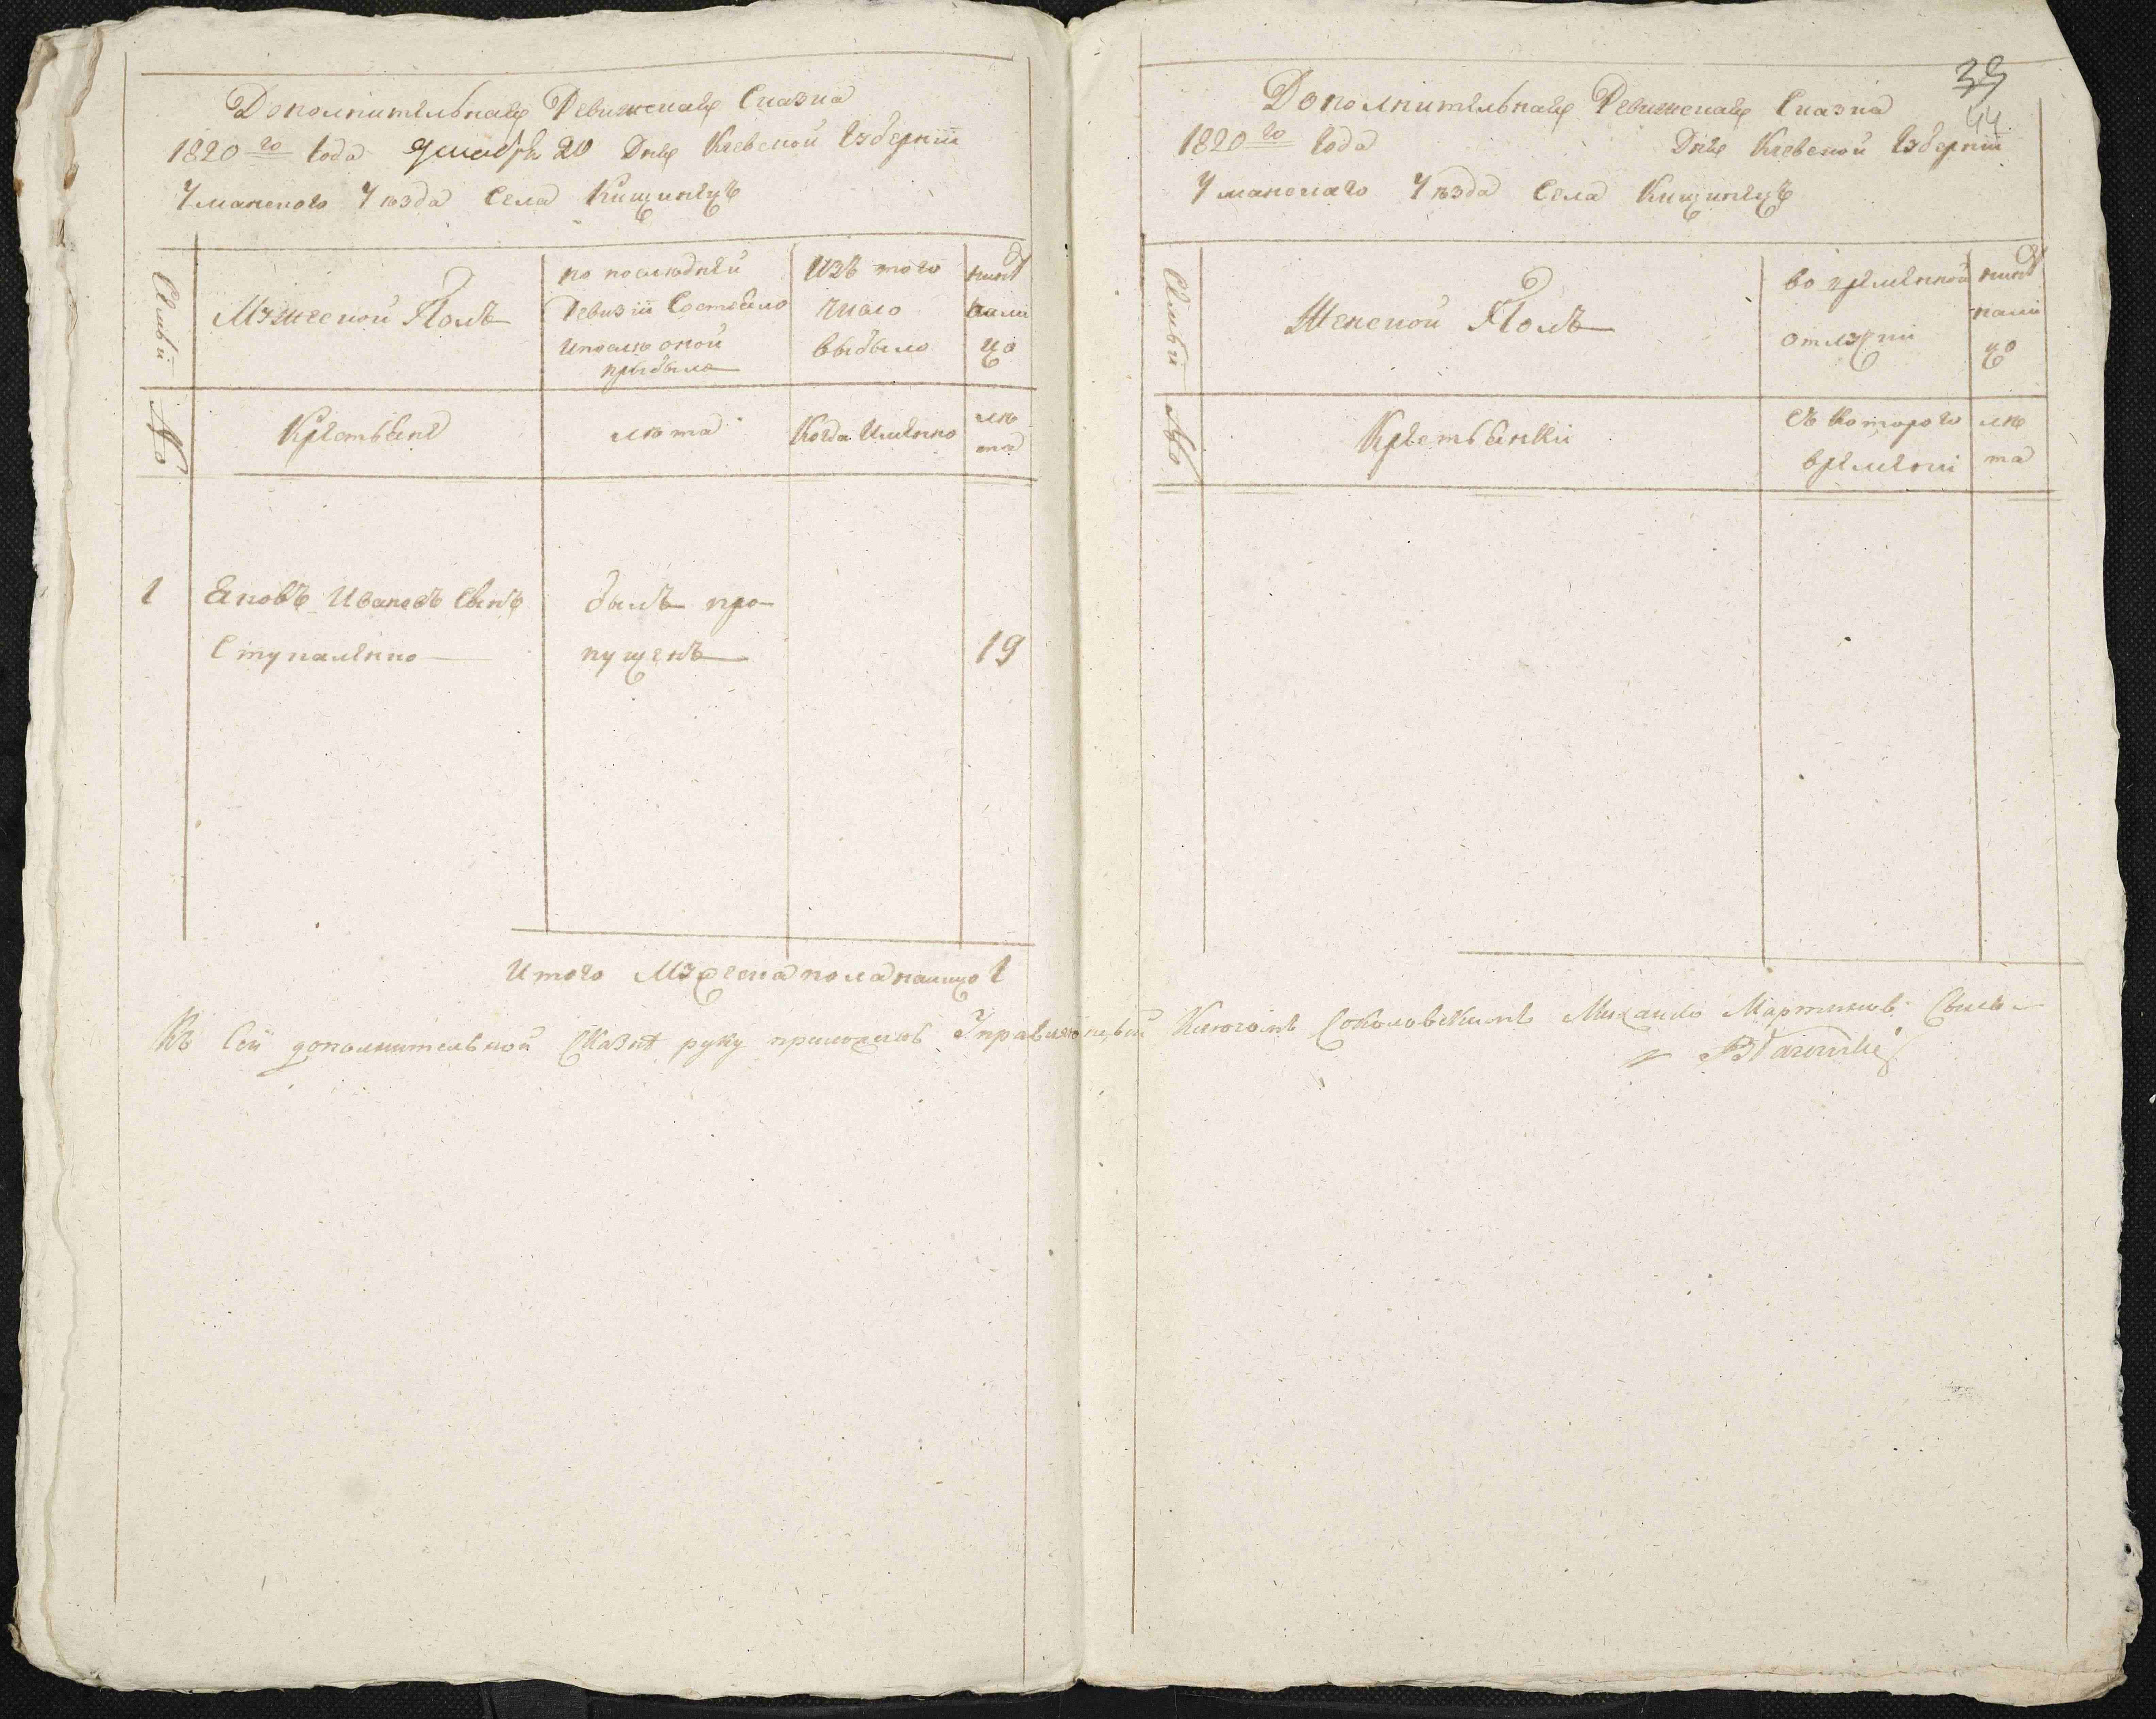 Дополнительная Ревижская Сказка
1820го Года декабря 20 Дня Киевской Губернїи
Уманского Уезда Села Кищинецъ
Семьи
Мужеской Полъ
по последней
Ревизїи Состояло
и после оной
прибыло
Изъ того
число
выбыло
ныне
нали
цо
№
Крестьяне
лета
Когда Именно
ле
та
1 Яковъ Ивановъ Сынъ былъ про-
Ступаленко пущенъ 19
Итого Мужеска пола налицо 1
39
44
Дополнительная Ревижская Сказка
1820го Года Дня Киевской Губернїи
Уманскаго Уезда Села Кищинецъ
Семьи
Женской Полъ
во временной
отлучки
ныне
нали
цо
№
Крестьянки
съ которого
времени
ле
та
Къ Сей дополнительной Сказке руку приложилъ Управляющый Ключомъ Соколовскимъ Михайло Мартиновъ Сынъ